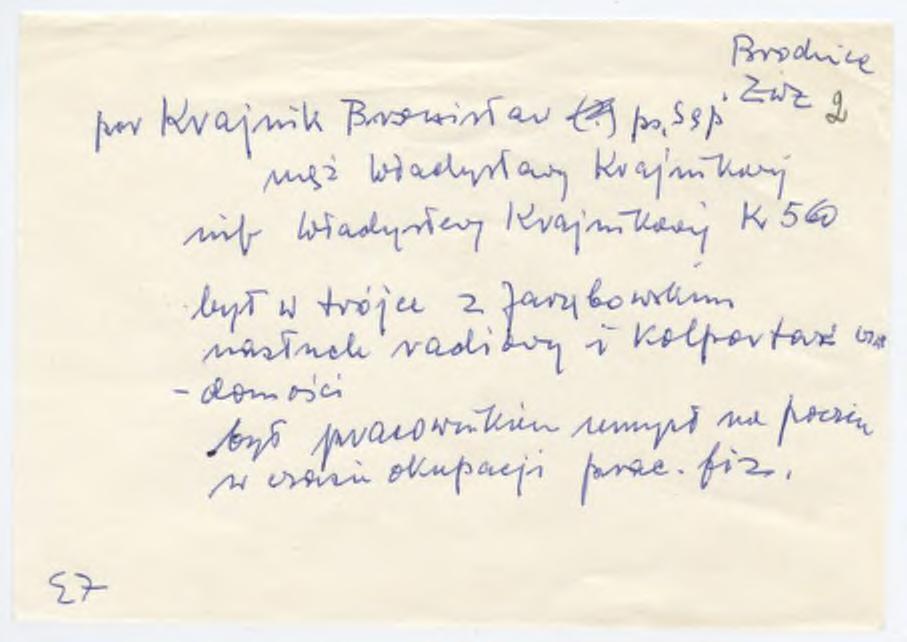 Brodnica
ZWZ 2
por Krajnik Bronisław ps. „Sęp”
mąż Władysławy Krajnikowej
inf Władysławy Krajnikowej K 560
był w trójce z Jarzębowskim
nasłuch radiowy i kolportaż wia
- domości
był pracownikiem umysł na poczcie
w czasie okupacji prac. fiz.